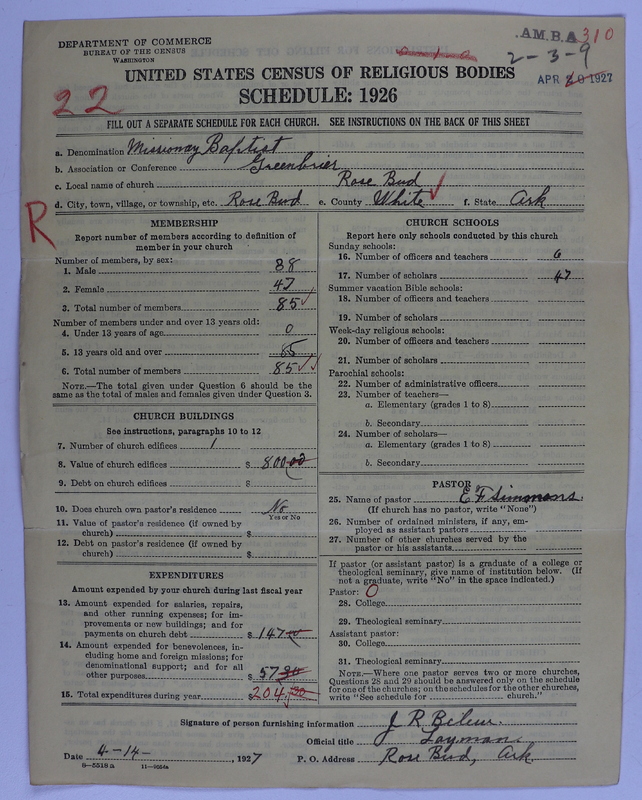 DEPARTMENT OF COMMERCE
BUREAU OF THE CENSUS
WASHINGTON
A.M.B.A 310
2-3-9
APR 20 1927
UNITED STATES CENSUS OF RELIGIOUS BODIES
SCHEDULE: 1926
22
FILL OUT A SEPARATE SCHEDULE FOR EACH CHURCH. SEE INSTRUCTIONS ON THE BACK OF THIS SHEET
a. Denomination Missionary Baptist
b. Association or Conference Greenbrier
c. Local name of church Rose Bud
d. City, town, village, or township, etc. Rose Bud e. County White f. State Ark
R
MEMBERSHIP
Report number of members according to definition of
member in your church
Number of members, by sex:
1. Male 38
2. Female 47
3. Total number of members 85
Number of members under and over 13 years old:
4. Under 13 years of age 0
5. 13 years old and over 85
6. Total number of members 85
NOTE.—The total given under Question 6 should be the
same as the total of males and females given under Question 3.
CHURCH BUILDINGS
See instructions, paragraphs 10 to 12
7. Number of church edifices 1
8. Value of church edifices $ 800.00
9. Debt on church edifices $
10. Does church own pastor's residence No
Yes or No
11. Value of pastor's residence (if owned by
church) $
12. Debt on pastor's residence (if owned by
church) $
EXPENDITURES
Amount expended by your church during last fiscal year
13. Amount expended for salaries, repairs,
and other running expenses; for im-
provements or new buildings; and for
payments on church debt $ 147
14. Amount expended for benevolences, in-
cluding home and foreign missions; for
denominational support; and for all
other purposes $ 57
15. Total expenditures during year $ 204
CHURCH SCHOOLS
Report here only schools conducted by this church
Sunday schools:
16. Number of officers and teachers 6
17. Number of scholars 47
Summer vacation Bible schools:
18. Number of officers and teachers
19. Number of scholars
Week-day religious schools:
20. Number of officers and teachers
21. Number of scholars
Parochial schools:
22. Number of administrative officers
23. Number of teachers—
a. Elementary (grades 1 to 8)
b. Secondary
24. Number of scholars—
a. Elementary (grades 1 to 8)
b. Secondary
PASTOR
25. Name of pastor E F Simmons.
(If church has no pastor, write "None")
26. Number of ordained ministers, if any, em-
ployed as assistant pastors
27. Number of other churches served by the
pastor or his assistants
If pastor (or assistant pastor) is a graduate of a college or
theological seminary, give name of institution below. (If
not a graduate, write "No" in the space indicated.)
Pastor: 0
28. College
29. Theological seminary
Assistant pastor:
30. College
31. Theological seminary
NOTE.—Where one pastor serves two or more churches,
Questions 28 and 29 should be answered only on the schedule
for one of the churches; on the schedules for the other churches,
write "See schedule for church."
Signature of person furnishing information J R
Official title Layman
Date 4-14-, 1927 P. O. Address Rose Bud, Ark.